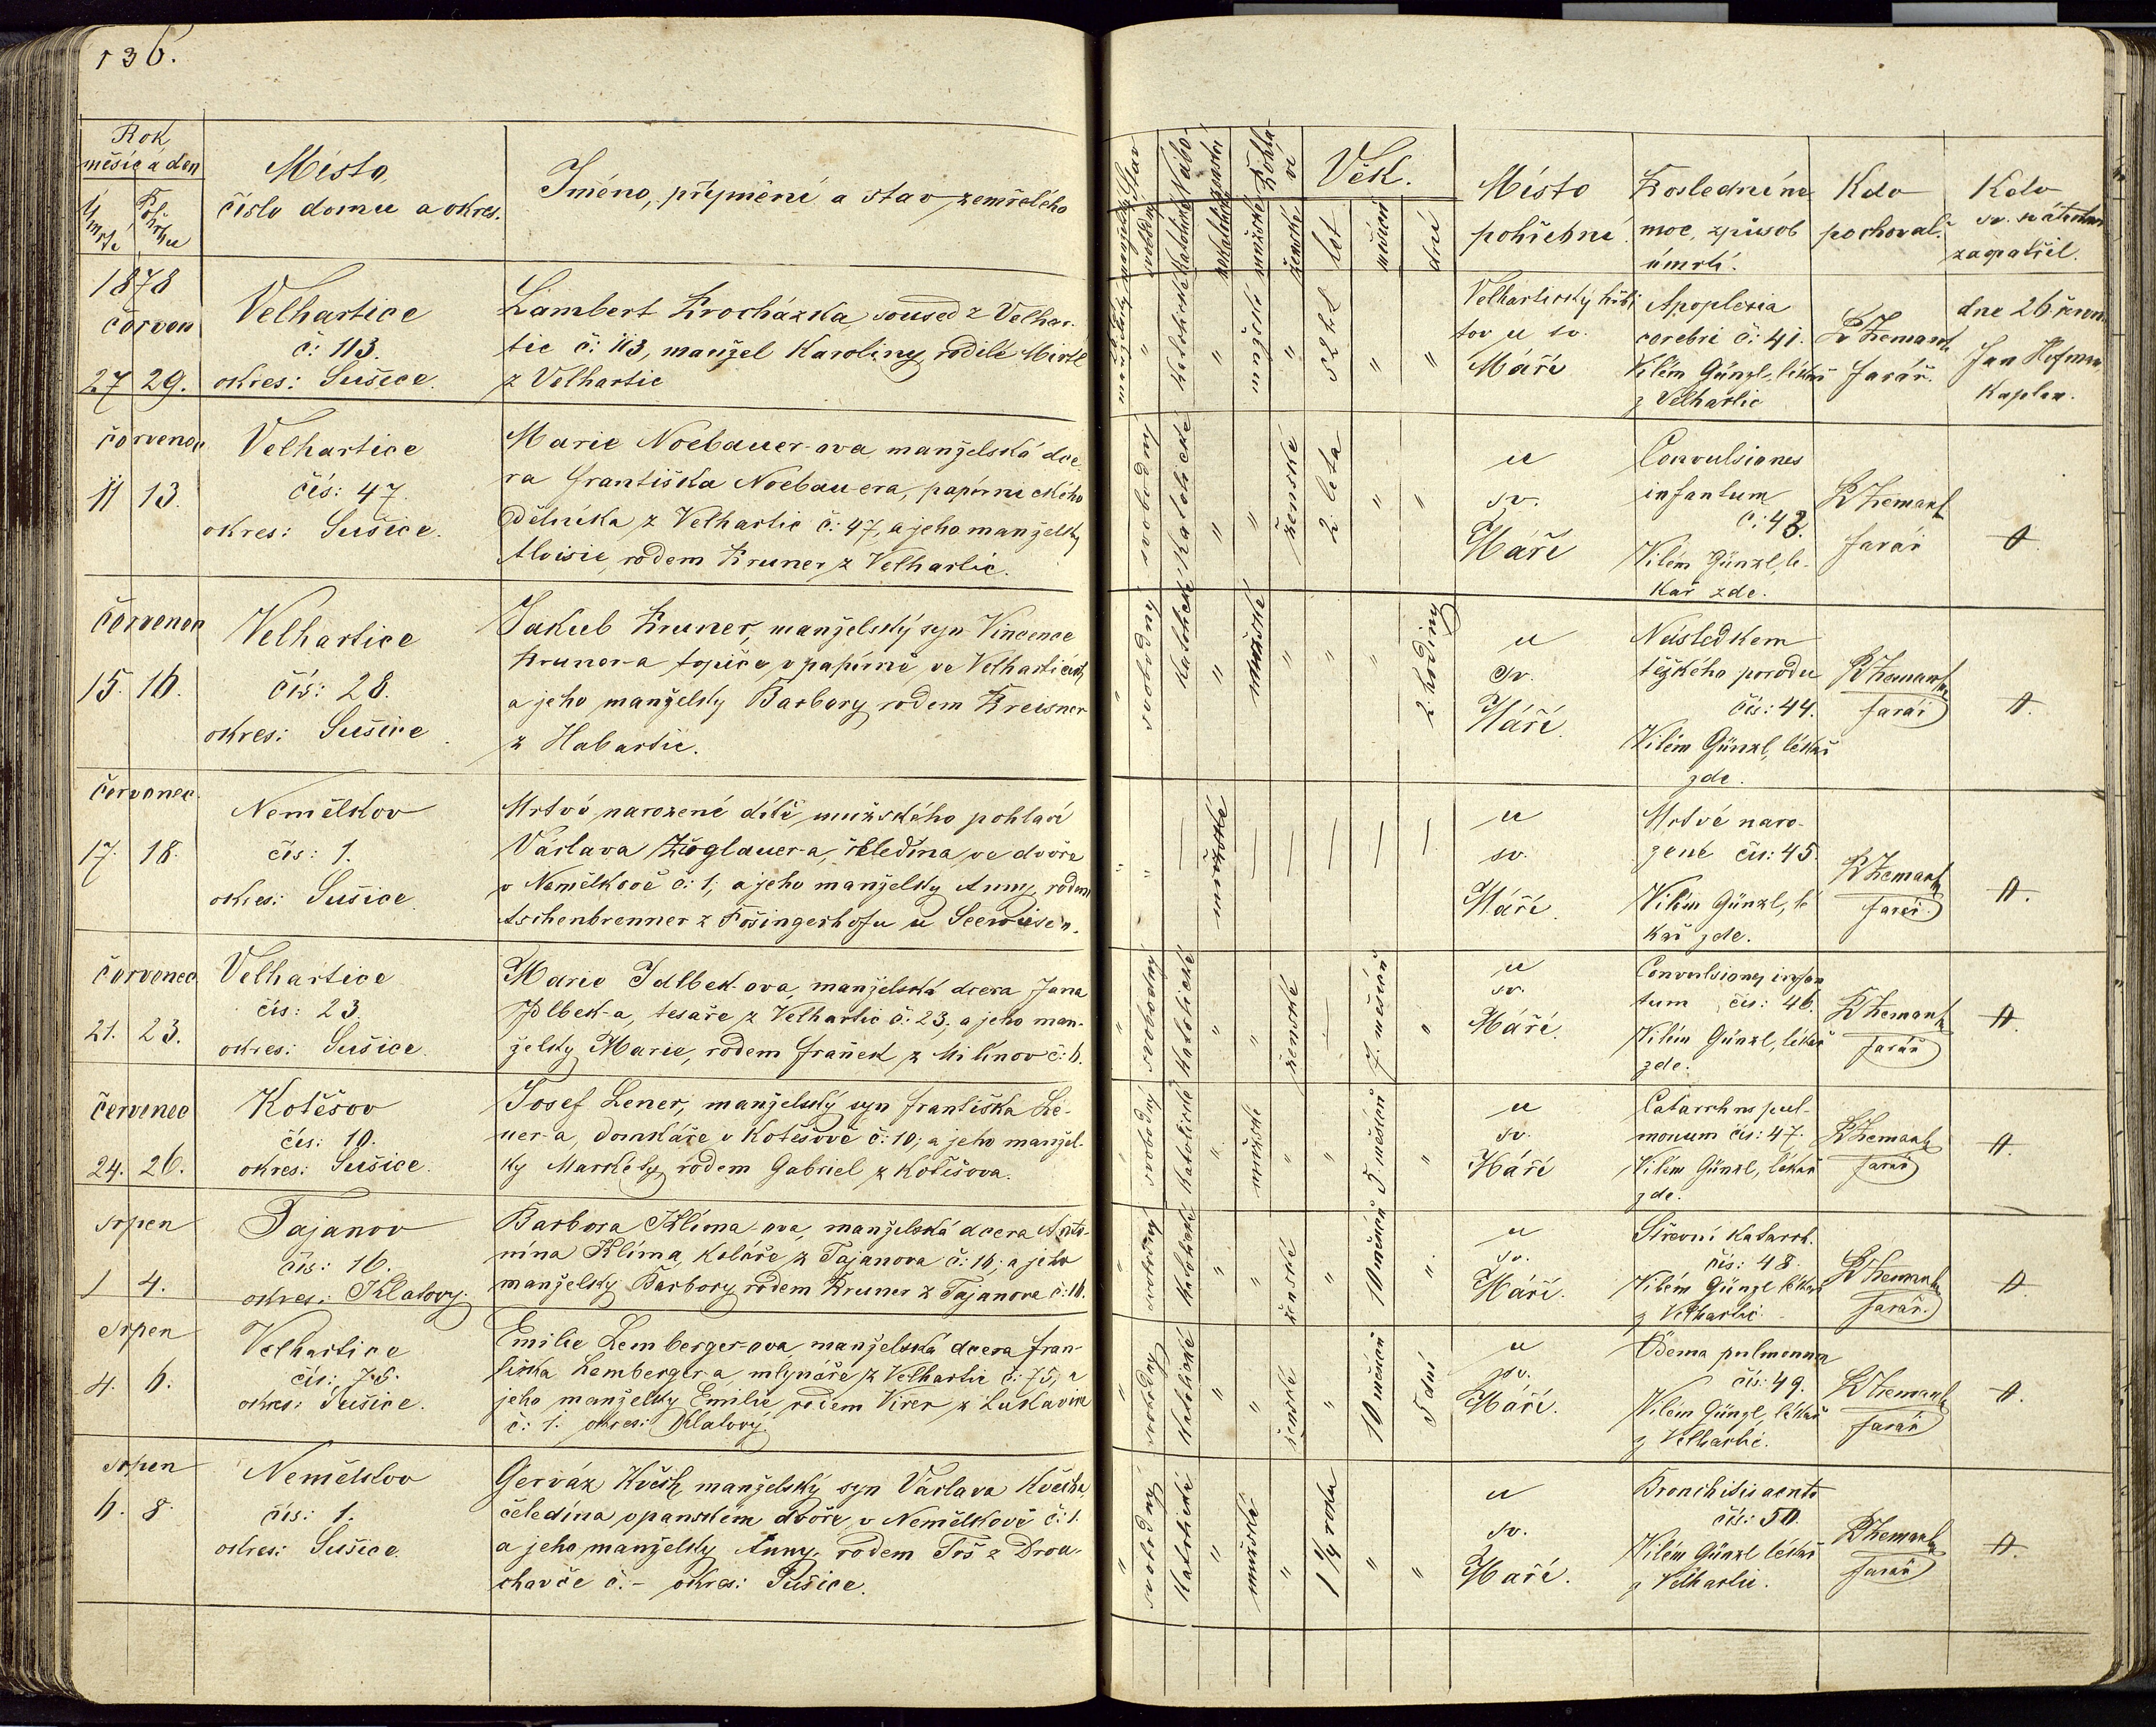 136.
Rok
měsíc a den
Úmrtí
Pohřbu
Místo,
číslo domu a okres.
Jméno, příjmení a stav zemřelého
Stav
manželský
svobodný
Nábo-
ženství
Katolické
nekatolické
Pohla-
ví
mužské
ženské
Věk.
let
měsíců
dní
Místo
pohřební.
Poslední ne-
moc, způsob
úmrtí.
Kdo
pochoval.
Kdo
zaopatřil.
1878
červen
27 29.
Velhartice
č: 113.
okres: Sušice.
Lambert Procházka, soused z Velhar-
tic č: 113, manžel Karoliny rodilé
z Velhartic
Katolické
"
mužské
"
52 let
"
"
Velhartický hřbi-
tov u sv.
Máří
Apoplexia
cerebri č: 41.
Vilém Günzl, lékař
z Velhartic
P Zemank
farář.
dne 26 června
Jan Hofman
Kaplan.
červenec
11 13.
Velhartice
čís: 47.
okres: Sušice.
Marie Noebauer-ova manželská dce-
ra Františka Noebauera, papírnického
Dělníka z Velhartic č: 47, a jeho manželky
Aloisie, rodem Pruner z Velhartic.
svobodný
Katolické
"
"
ženské
2 leta
"
"
u
sv.
Máří
Convulsiones
infantum
č: 43.
Vilém Günzl, lé-
kař zde.
P Zemank
farář
červenec
15. 16.
Velhartice
čís: 28.
okres: Sušice
Jakub Pruner, manželský syn Vincence
Pruner-a topiče v papírně ve Velharticích
a jeho manželky Barbory rodem Preisner
z Habartic.
svobodný
Katolické
"
mužské
"
"
"
2. hodiny
u
Sv.
Máří.
Následkem
těžkého porodu
čís: 44.
Vilém Günzl, lékař
zde.
P Zemank
farář
červenec.
17. 18.
Nemělkov
čís: 1.
okres: Sušice.
Mrtvé narozené dítě mužského pohlaví
Václava Zöglauer-a, čeledína ve dvoře
v Nemělkově č: 1, a jeho manželky Anny, rodem
Aschenbrenner z Fosingerhofu u Seewiesen.
"
—
mužské
—
—
—
—
—
u
sv.
Máří.
Mrtvé naro-
zené čís: 45.
Vilém Günzl, lé-
kař zde.
P Zemank
farář.
červenec.
21. 23.
Velhartice
čís: 23.
okres: Sušice.
Marie Idlbek-ova, manželská dcera Jana
Idlbek-a, tesaře z Velhartic č: 23, a jeho man-
želky Marie, rodem Franěk z Milínov č: 6.
svobodný
Katolické
"
"
ženské
—
7. měsíců
"
u
sv.
Máří.
Convulsiones infan-
tum čís: 46.
Vilém Günzl, lékař
zde.
P Zemank
farář
červenec
24. 26.
Kotěšov
čís: 10.
okres: Sušice.
Josef Lener, manželský syn Františka Le-
ner-a, domkáře v Kotěšově č: 10, a jeho manžel-
ky Markéty, rodem Gabriel z Kotěšova.
svobodný
Katolické
"
mužské
"
"
5 měsíců
"
u
sv.
Máří
Catarrhus pul-
monum čís: 47.
Vilém Günzl, lékař
zde.
P Zemank
farář
srpen
1 4.
Tajanov
čís: 16.
okres: Klatovy.
Barbora Klima-ova, manželská dcera Anto-
nína Klima, koláře z Tajanova č: 16; a jeho
manželky Barbory rodem Pruner z Tajanova č: 16.
svobodný
Katolické
"
"
ženské
"
10 měsíců
"
u
sv.
Máří.
Střevní katarrh.
čís: 48.
Vilém Günzl lékař
z Velhartic.
P Zemank
farář.
srpen
4. 6.
Velhartice
čís: 75.
okres: Sušice.
Emilie Lemberger-ova, manželská dcera Fran-
tiška Lemberger-a, mlynáře z Velhartic č: 75, a
jeho manželky Emilie, rodem Virer z Lukavice
č: 1. okres: Klatovy.
svobodný
Katolické
"
"
ženské
"
10 měsíců
5 dní
u
sv.
Máří.
Ödema pulmonum
čís: 49.
Vilém Günzl, lékař
z Velhartic.
P Zemank
farář
srpen
6. 8.
Nemělkov
čís: 1.
okres: Sušice.
Gerváz Květ, manželský syn Václava Květa,
čeledína v panském dvoře v Nemělkově č: 1.
a jeho manželky Anny, rodem Toš z Drou-
havče č: - okres: Sušice.
svobodný
Katolické
"
mužské
"
1 1/4 roku
"
"
u
sv.
Máří.
Bronchitis acuta
čís: 50.
Vilém Günzl lékař
z Velhartic.
P Zemank
farář